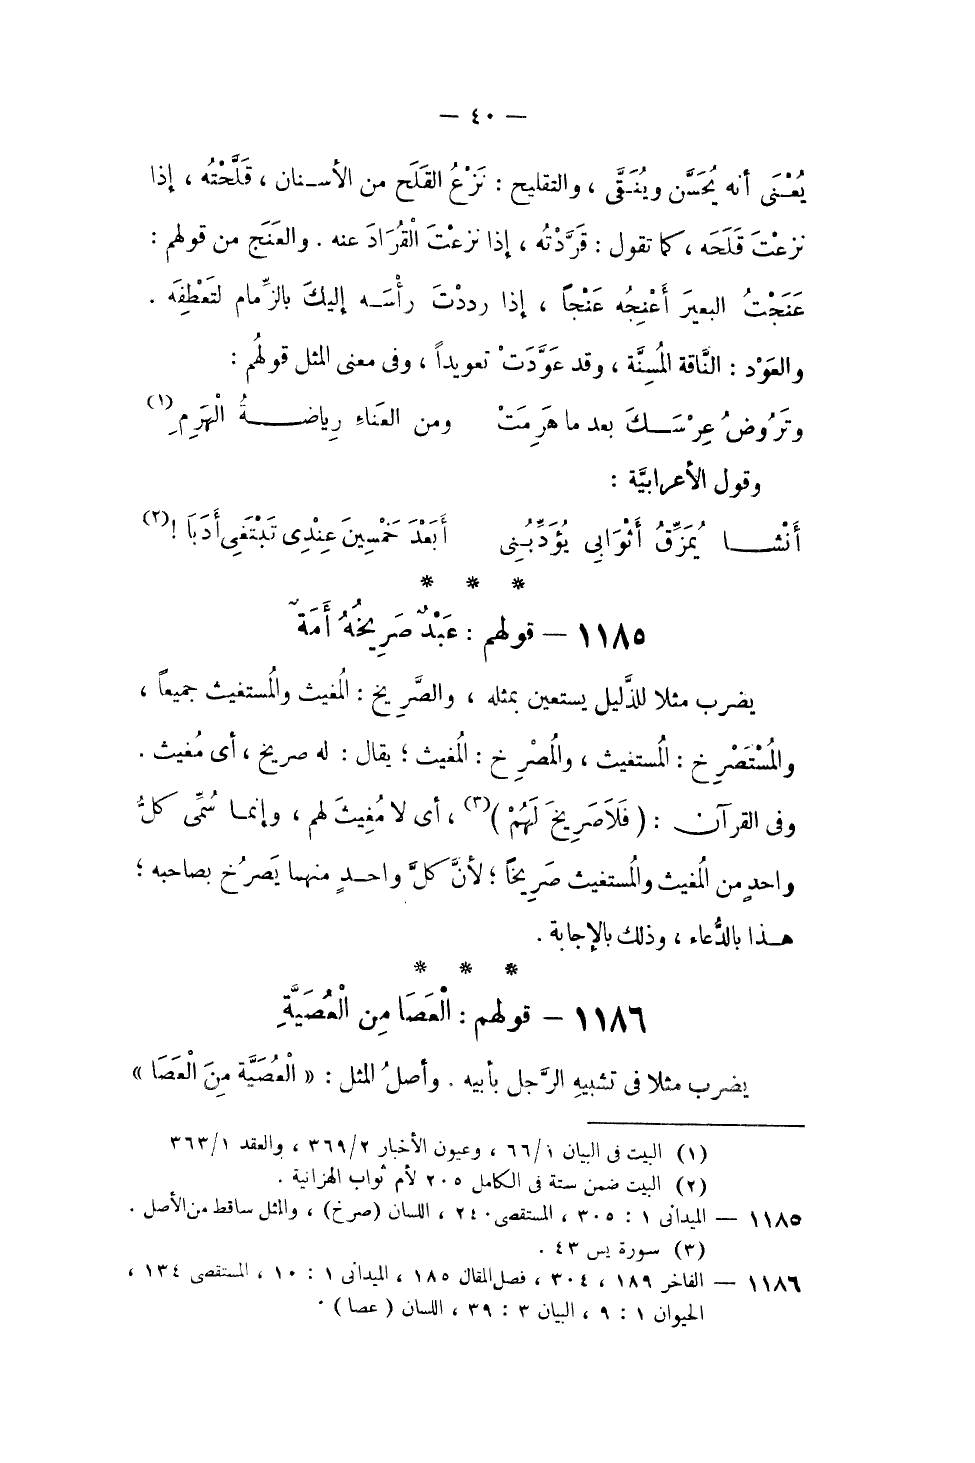 — ٤٠ —
يُعْـنَى أنه يُحَسَّن ويُنَـقَّى ، والتقليح : نَزْعُ القَلَح من الأسـنان ، قَلَّحْتُه ، إذا
نزعْتَ قَلَحَه ، كما تقول : قَرَّدْتُه ، إذا نزعْتَ الْقُرَادَ عنه . والعَنَج من قولهم :
عَنَجْتُ البعيرَ أَعْنِجُه عَنْجاً ، إذا رددْتَ رأْسَـه إليكَ بالزِّمام لتَعْطِفَه .
والعَوْد : النَّاقة المُسِنَّة ، وقد عَوَّدَتْ تعويداً ، وفى معنى المثل قولهُم :
وتَرُوضُ عِرْسَـكَ بعد ما هَرِمَتْ ومن العَناءِ رِياضـةُ الْهَرِمِ(١)
وقول الأعرابيَّة :
أَنْشـا يُمَزِّقُ أَثْوَابِي يُؤَدِّبُـنِى أَبَعْدَ خَمْسِينَ عِنْدِى تَبْتَغِى أَدَبَا !(٢)
* * *
١١٨٥ – قولهم : عَبْدٌ صَرِيخُهُ أَمَةٌ
يضرب مثلا للذَّليل يستعين بمثله ، والصَّرِيخ : المُغيث والمُستغيث جميعاً ،
والمُسْتَصْرِخ : المُستغيث ، والمُصْرِخ : المُغيث ؛ يقال : له صريخ ، أى مُغيث .
وفى القرآن : ( فَلَاصَرِيخَ لَهُمْ )(٣) ، أى لا مُغِيثَ لهم ، وإنمـا سُمِّى كلُّ
واحدٍ من المُغيث والمُستغيث صَرِيخًا ؛ لأنَّ كلَّ واحـدٍ منهما يَصرُخ بصاحبه ؛
هـذا بالدُّعاء ، وذلك بالإجابة .
* * *
١١٨٦ – قولهم : الْعَصَا مِن الْعُصَيَّةِ
يضرب مثلا فى تشبيهِ الرَّجل بأبيه . وأصلُ المثل : « الْعُصَيَّة مِنَ الْعَصَا »
(١) البيت فى البيان ٦٦/١ ، وعيون الأخبار ٣٦٩/٢ ، والعقد ٣٦٣/١
(٢) البيت ضمن ستة فى الكامل ٢٠٥ لأم ثواب الهزانية .
١١٨٥ — الميدانى ١ : ٣٠٥ ، المستقصى ٢٤٠ ، اللسان (صرخ) ، والمثل ساقط من الأصل .
(٣) سورة يس ٤٣ .
١١٨٦ — الفاخر ١٨٩ ، ٣٠٤ ، فصل المقال ١٨٥ ، الميدانى ١ : ١٠ ، المستقصى ١٣٤ ،
الحيوان ١ : ٩ ، البيان ٣ : ٣٩ ، اللسان ( عصا ) .